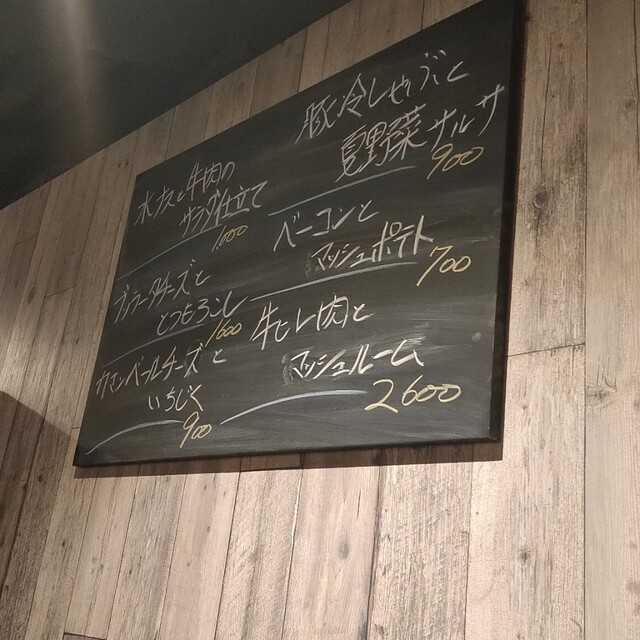 豚冷しゃぶと
夏野菜サルサ
900
ベーコンと
マッシュポテト
700
牛ヒレ肉と
マッシュルーム
2600
水ナスと牛肉の
サラダ仕立て
1000
ブラータチーズと
とうもろこし
1600
カマンベールチーズと
いちじく
900